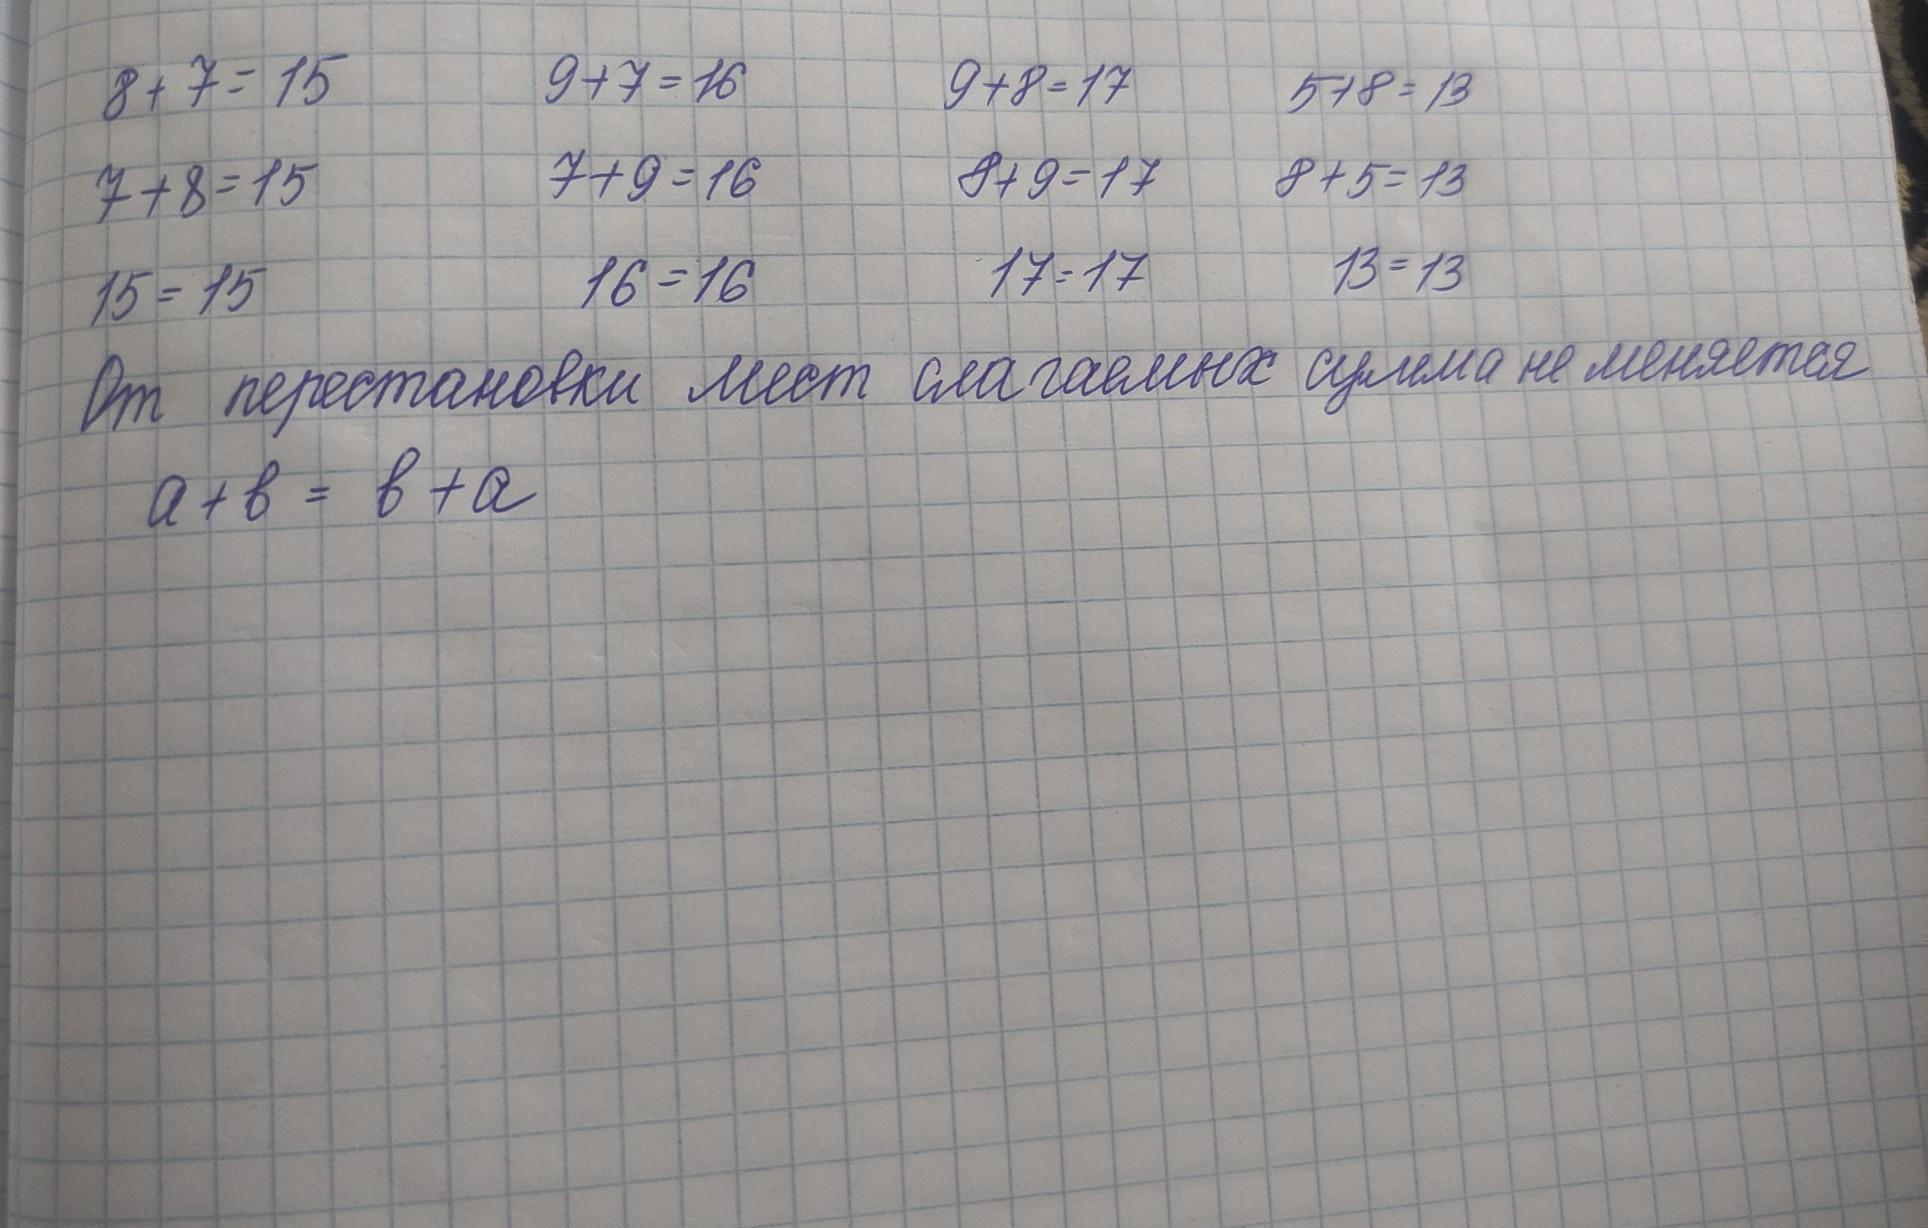 8+7=15 9+7=16 9+8=17 5+8=13
7+8=15 7+9=16 8+9=17 8+5=13
15=15 16=16 17=17 13=13
От перестановки мест слагаемых сумма не меняется
а+в = в+а